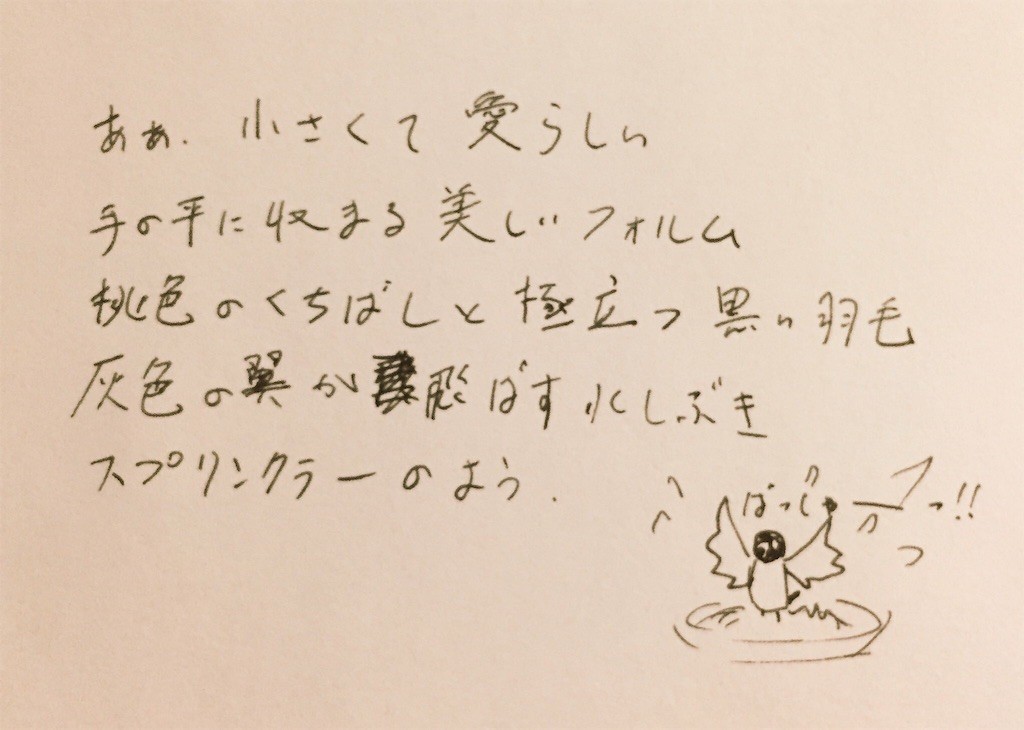 あぁ、小さくて 愛らしい
手の平に収まる 美しいフォルム
桃色のくちばしと 極立つ 黒い羽毛
灰色の翼が 飛ばす 水しぶき
スプリンクラーのよう.
ばっしゃーっ!!